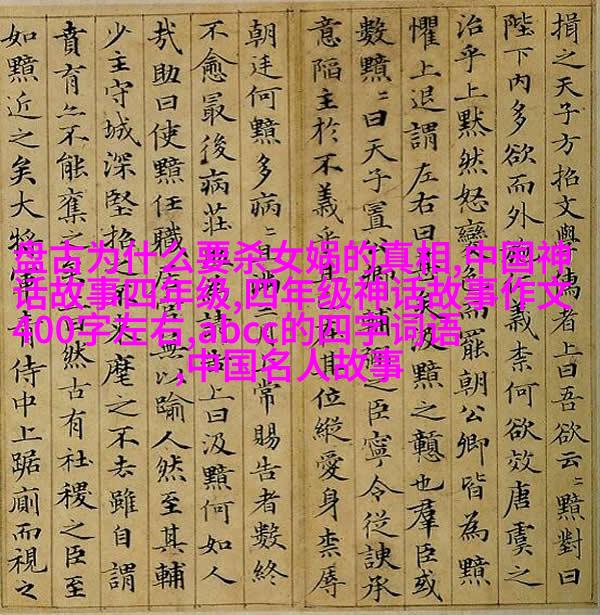 盘古为什么要杀女娲的真相,中国神
话故事四年级,四年级神话故事作文
400字左右,abcc的四字词语
,中国名人故事
揖之天子方招文學儒者上曰吾欲云〻黯對曰
陛下内多欲而外義柰何欲效唐虞之
治乎上默然怒變色而罷朝公卿皆為黯
懼上退謂左右曰矣汲黯之戇也羣臣或
數黯〻曰天子置輔之臣寧令從諛承
意陷主於不義乎且在其位縱愛身柰辱
朝廷何黯多病〻且滿三上常賜告者數終
不愈最後病莊請上曰汲黯何如人
哉助曰使黯任職居無以踰人然至其輔
少主守城深堅招之不麾之不去雖自謂
賁育亦不能奪之然古有社稷之臣至
如黯近之矣大将軍青侍中上踞廁而視之